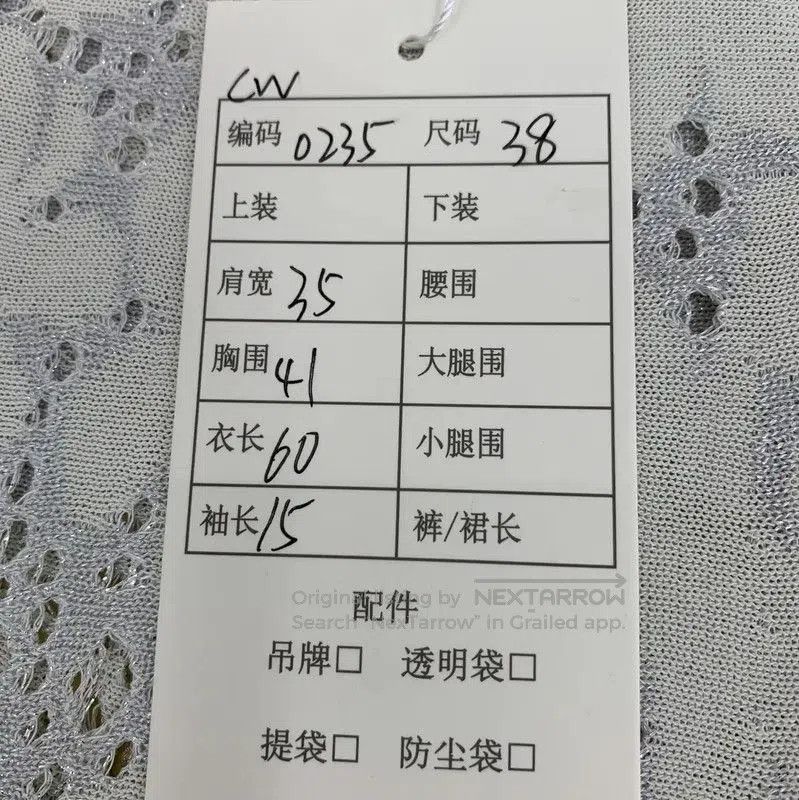 CW
编码 0235 尺码 38
上装 下装
肩宽 35 腰围
胸围 41 大腿围
衣长 60 小腿围
袖长 15 裤/裙长
配件
Original listing by NEXTARROW
Search "NexTarrow" in Grailed app.
吊牌□ 透明袋□
提袋□ 防尘袋□